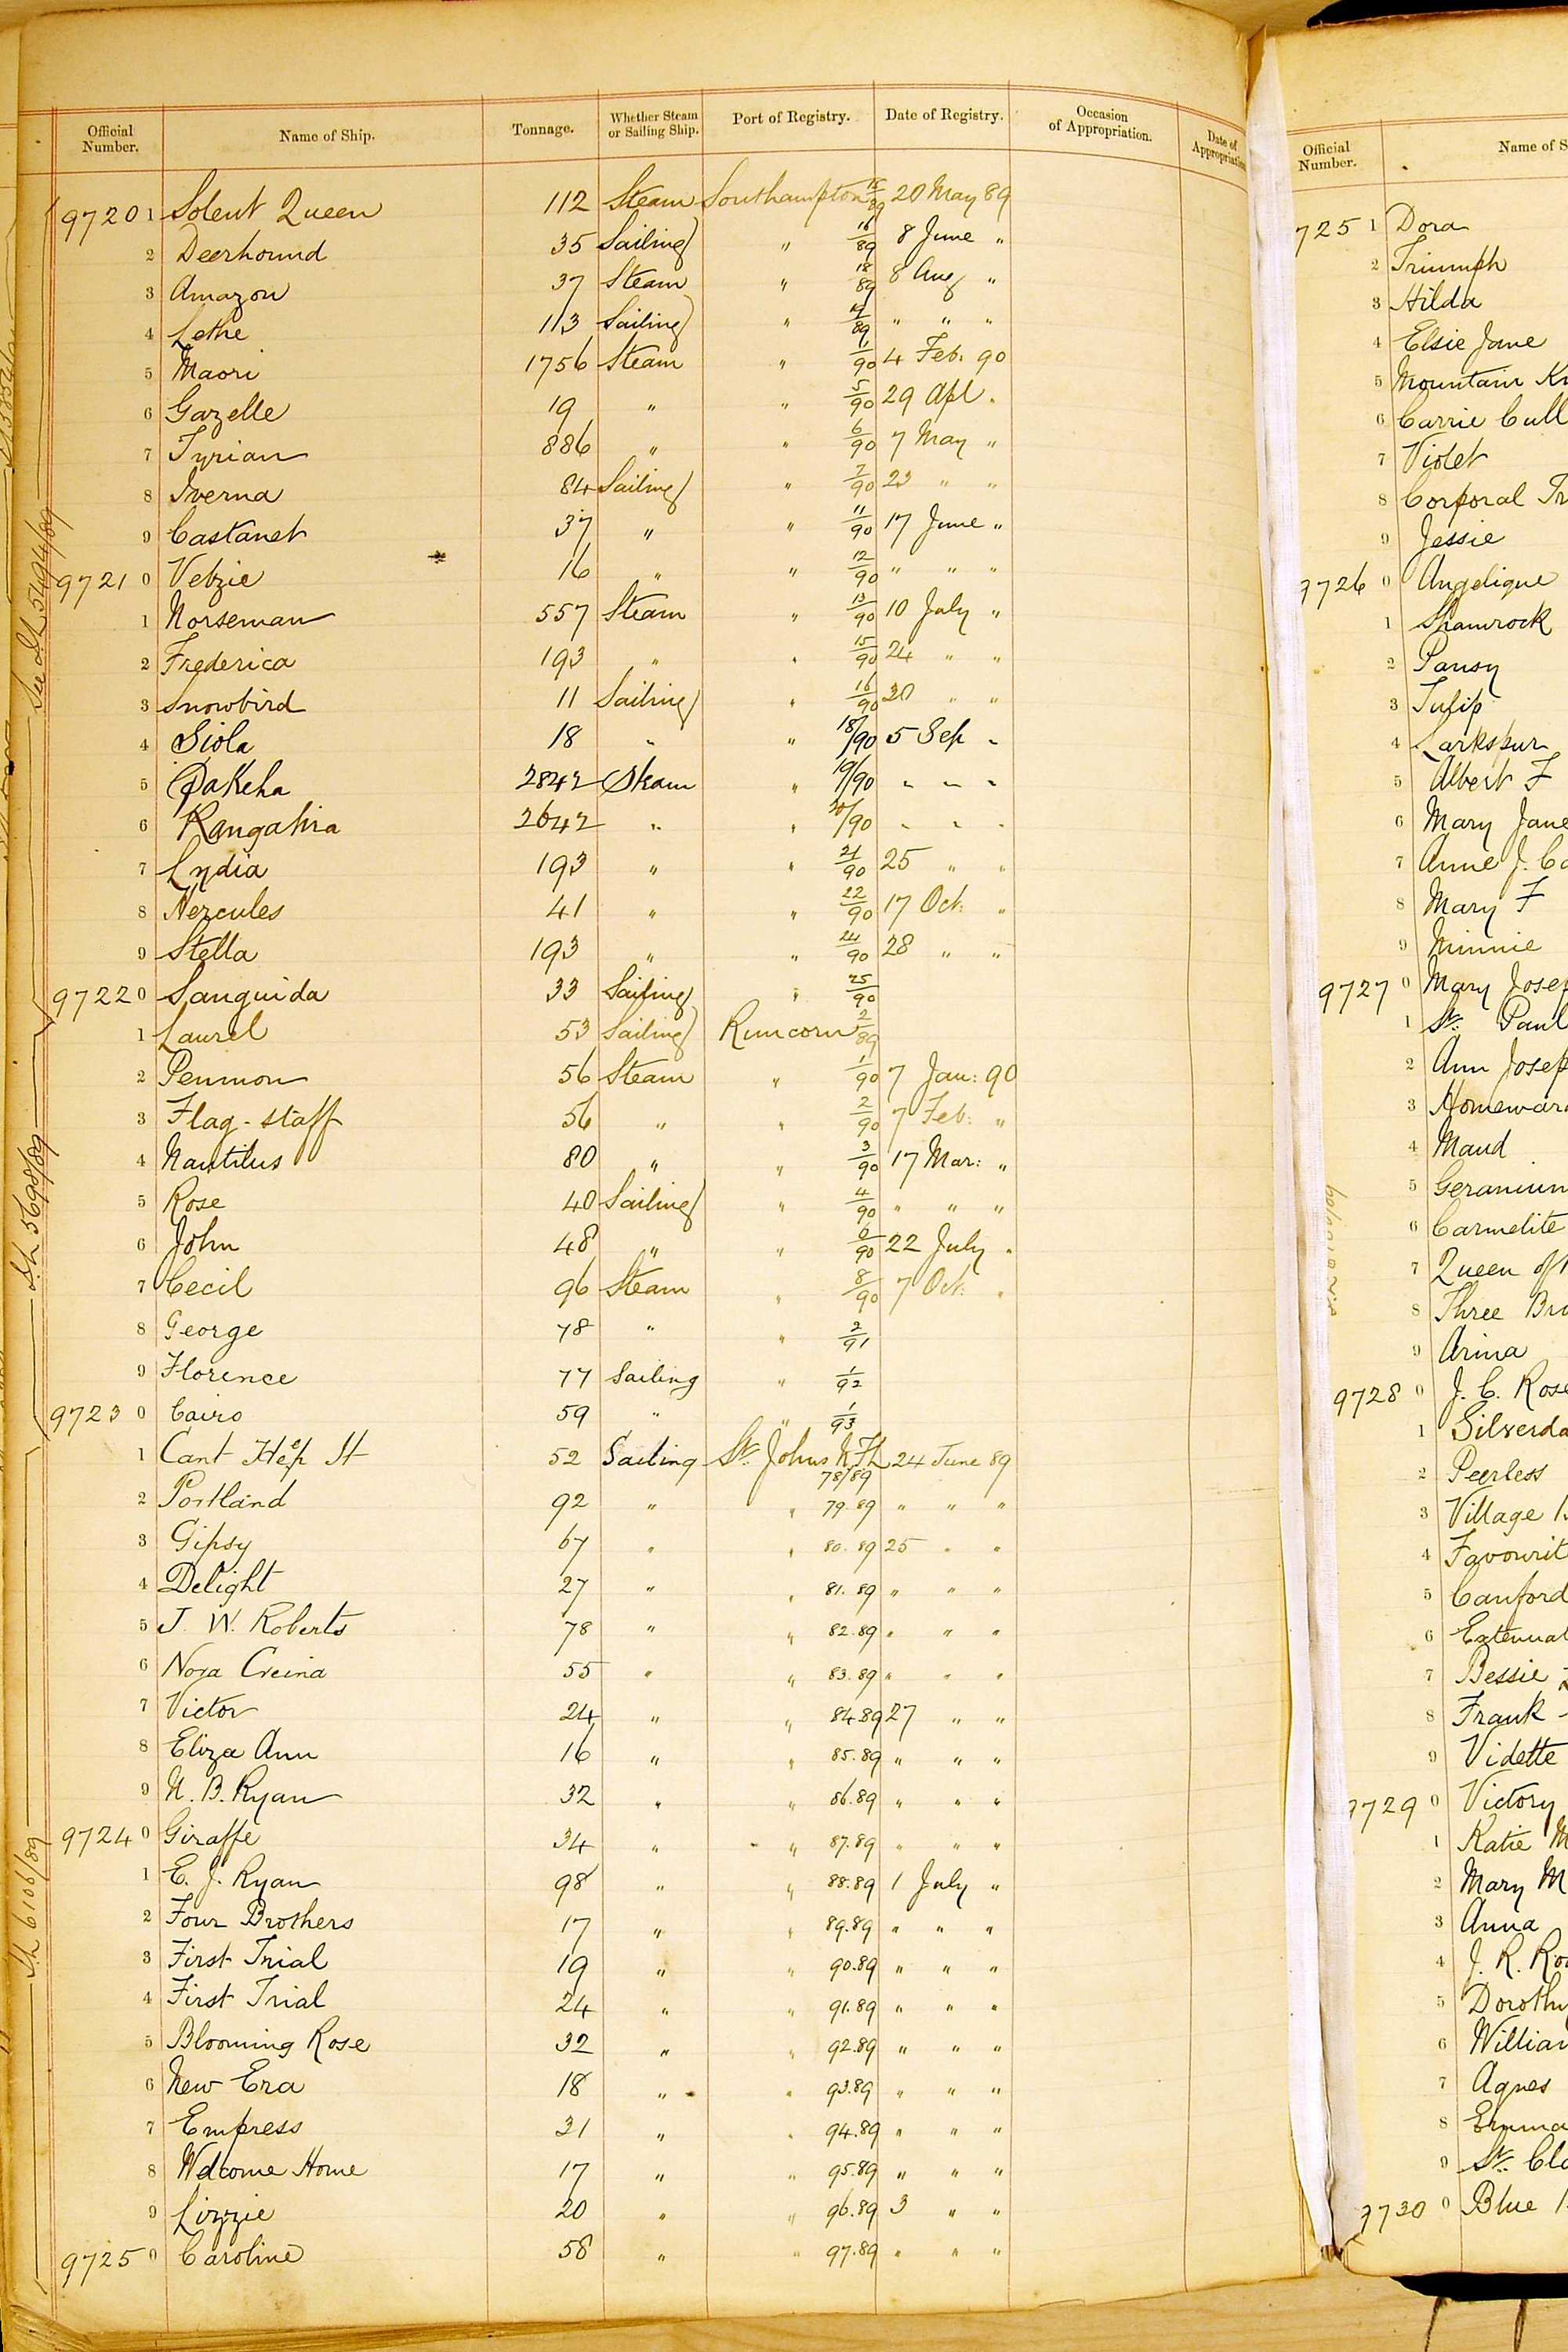 Official Number. Name of Ship. Tonnage. Whether Steam or Sailing Ship. Port of Registry. Date of Registry. Occasion of Appropriation. Date of Appropriation
9720 1 Solent Queen 112 Steam Southampton 20 May 89
2 Deerhound 35 Sailing " 16/89 8 June "
3 Amazon 37 Steam " 18/89 8 Aug "
4 Lethe 113 Sailing " " " "
5 Maori 1756 Steam " 1/90 4 Feb. 90
6 Gazelle 19 " " 5/90 29 Apl "
7 Tyrian 886 " " 6/90 7 May "
8 Iverna 84 Sailing " 7/90 23 " "
9 Castanet 37 " " 11/90 17 June "
9721 0 16 " " 12/90 " " "
1 Norseman 557 Steam " 13/90 10 July "
2 Frederica 193 " " 15/90 24 " "
3 Snowbird 11 Sailing " 16/90 30 " "
4 Siola 18 " " 18/90 5 Sep "
5 Pakeha 2842 Steam " 19/90 " " "
6 2642 " " 20/90 " " "
7 Lydia 193 " " 21/90 25 " "
8 Hercules 41 " " 22/90 17 Oct: "
9 Stella 193 " " 24/90 28 " "
9722 0 Sanguida 33 Sailing " 25/90
1 Laurel 53 Sailing Runcorn 2/89
2 Penmon 56 Steam " 1/90 7 Jan: 90
3 Flag-staff 56 " " 2/90 7 Feb: "
4 Nautilus 80 " " 3/90 17 Mar: "
5 Rose 40 Sailing " 4/90 " " "
6 John 48 " " 6/90 22 July "
7 Cecil 96 Steam " 8/90 7 Oct: "
8 George 78 " " 2/91
9 Florence 77 Sailing " 1/92
9723 0 Cairo 59 " " 1/93
1 Cant Help It 52 Sailing St. Johns N.Fd. 78/89 24 June 89
2 Portland 92 " " 79.89 " " "
3 Gipsy 67 " " 80.89 25 " "
4 Delight 27 " " 81.89 " " "
5 J. W. Roberts 78 " " 82.89 " " "
6 Nora Creina 55 " " 83.89 " " "
7 Victor 24 " " 84.89 27 " "
8 Eliza Ann 16 " " 85.89 " " "
9 N. B. Ryan 32 " " 86.89 " " "
9724 0 Giraffe 34 " " 87.89 " " "
1 E. J. Ryan 98 " " 88.89 1 July "
2 Four Brothers 17 " " 89.89 " " "
3 First Trial 19 " " 90.89 " " "
4 First Trial 24 " " 91.89 " " "
5 Blooming Rose 32 " " 92.89 " " "
6 New Era 18 " " 93.89 " " "
7 Empress 31 " " 94.89 " " "
8 Welcome Home 17 " " 95.89 " " "
9 Lizzie 20 " " 96.89 3 " "
9725 0 Caroline 58 " " 97.89 " " "
See S.h 5494/89
S.h 5698/89
S.h 6106/89
Official Number. Name of S
725 1 Dora
2 Triumph
3 Hilda
4 Elsie Jane
5 Mountain K
6 Carrie Cull
7 Violet
8 Corporal Tr
9 Jessie
9726 0 Angelique
1 Shamrock
2 Pansy
3 Tulip
4 Larkspur
5 Albert F
6 Mary Jane
7 Anne J. Co
8 Mary F
9 Minnie
9727 0 Mary Josep
1 St. Paul
2 Ann Josep
3 Homeward
4 Maud
5 Geranium
6 Carmelite
7 Queen of
8 Three Bro
9 Arina
9728 0 J. C. Rose
1 Silverda
2 Peerless
3 Village
4 Favourit
5 Canford
6 Extenuat
7 Bessie
8 Frank
9 Vidette
9729 0 Victory
1 Katie M
2 Mary M
3 Anna
4 J. R. Ro
5 Dorothy
6 William
7 Agnes
8 Emma
9 St. Cl
9730 0 Blue